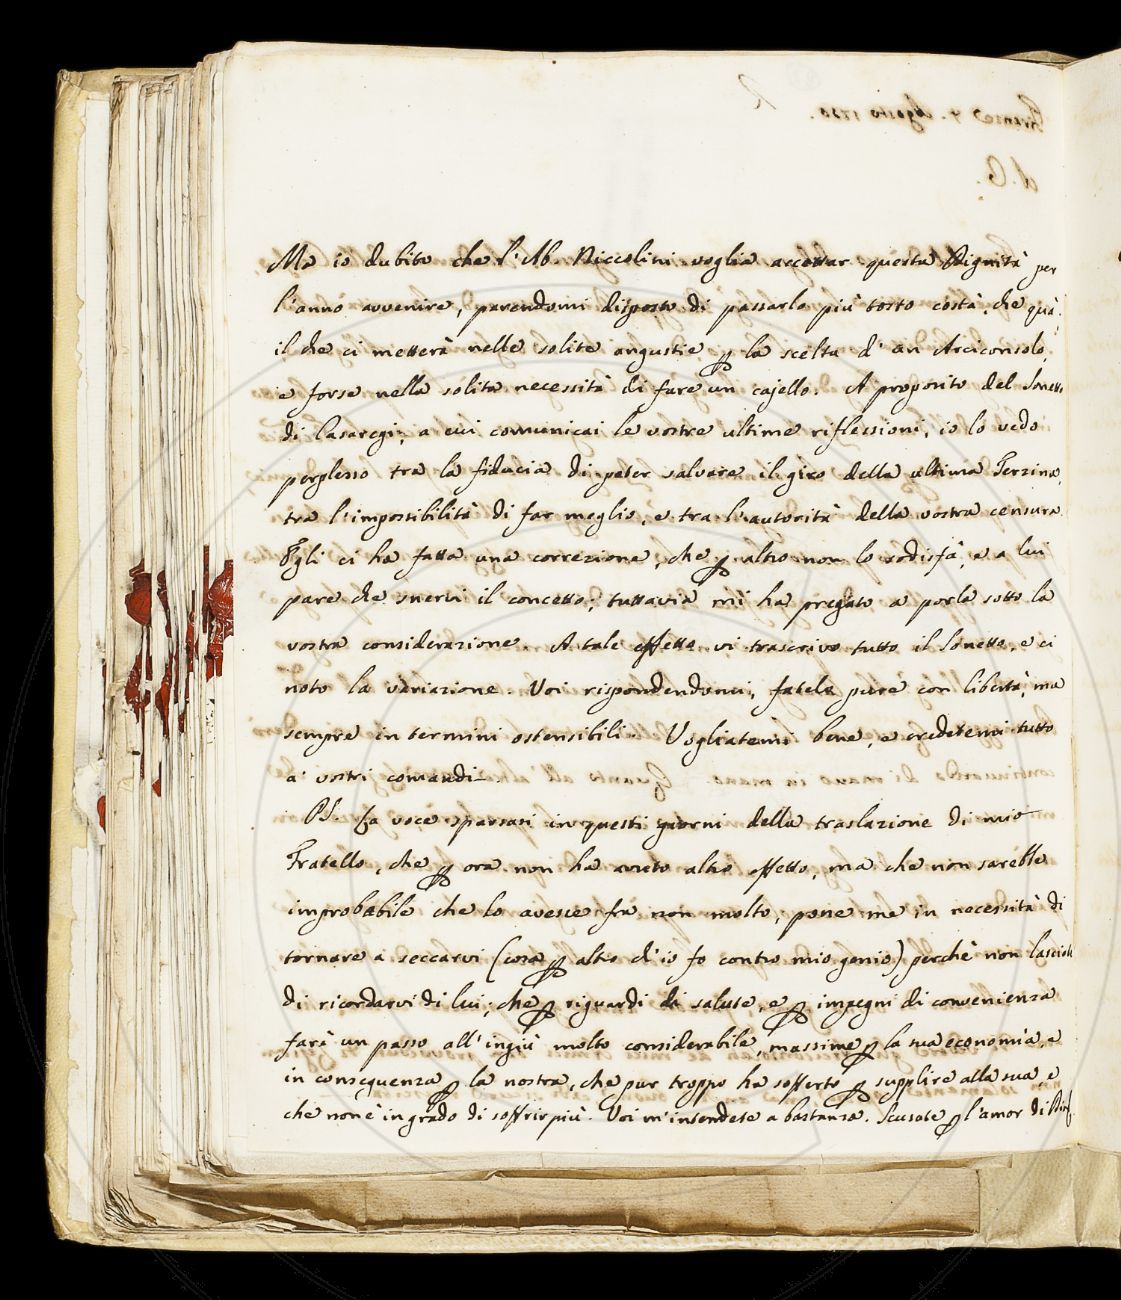 Ma io dubito che l'Ab. Niccolini voglia accettar questa Dignità per
l'anno avvenire, parendomi disposto di passarlo più tosto costà, che quà:
il che ci metterà nelle solite angustie ꝑ la scelta d'un Arciconsolo,
e forse nella solita necessità di fare un cajello. A proposito del Sonetto
di Casaregi, a cui comunicai le vostre ultime riflessioni, io lo vedo
perplesso tra la fiducia di poter salvare il giro della ultima Terzina,
tra l'impossibilità di far meglio, e tra l'autorità della vostra censura.
Egli ci ha fatta una correzione, che ꝑ altro non lo sodisfà, e a lui
pare che snervi il concetto; tuttavia mi ha pregato a porla sotto la
vostra considerazione. A tale effetto vi trascrivo tutto il Sonetto, e ci
noto la variazione. Voi rispondendomi, fatelo pure con libertà, ma
sempre in termini ostensibili. Vogliatemi bene, e credetemi tutto
a' vostri comandi.
PS. La voce sparsasi in questi giorni della traslazione di mio
Fratello, che ꝑ ora non ha avuto altro effetto, ma che non sarebbe
improbabile che lo avesse fra non molto, pone me in necessità di
tornare a seccarvi (cosa ꝑ altro ch'io fo contro mio genio) perchè non lasciate
di ricordarvi di lui; che ꝑ riguardi di salute, e ꝑ impegni di convenienza
farà un passo all'ingiù molto considerabile, massime ꝑ la sua economia, e
in conseguenza ꝑ la nostra, che pur troppo ha sofferto ꝑ supplire alla sua, e
che non è in grado di soffrir più. Voi m'intendete a bastanza. Scusate ꝑ l'amor di